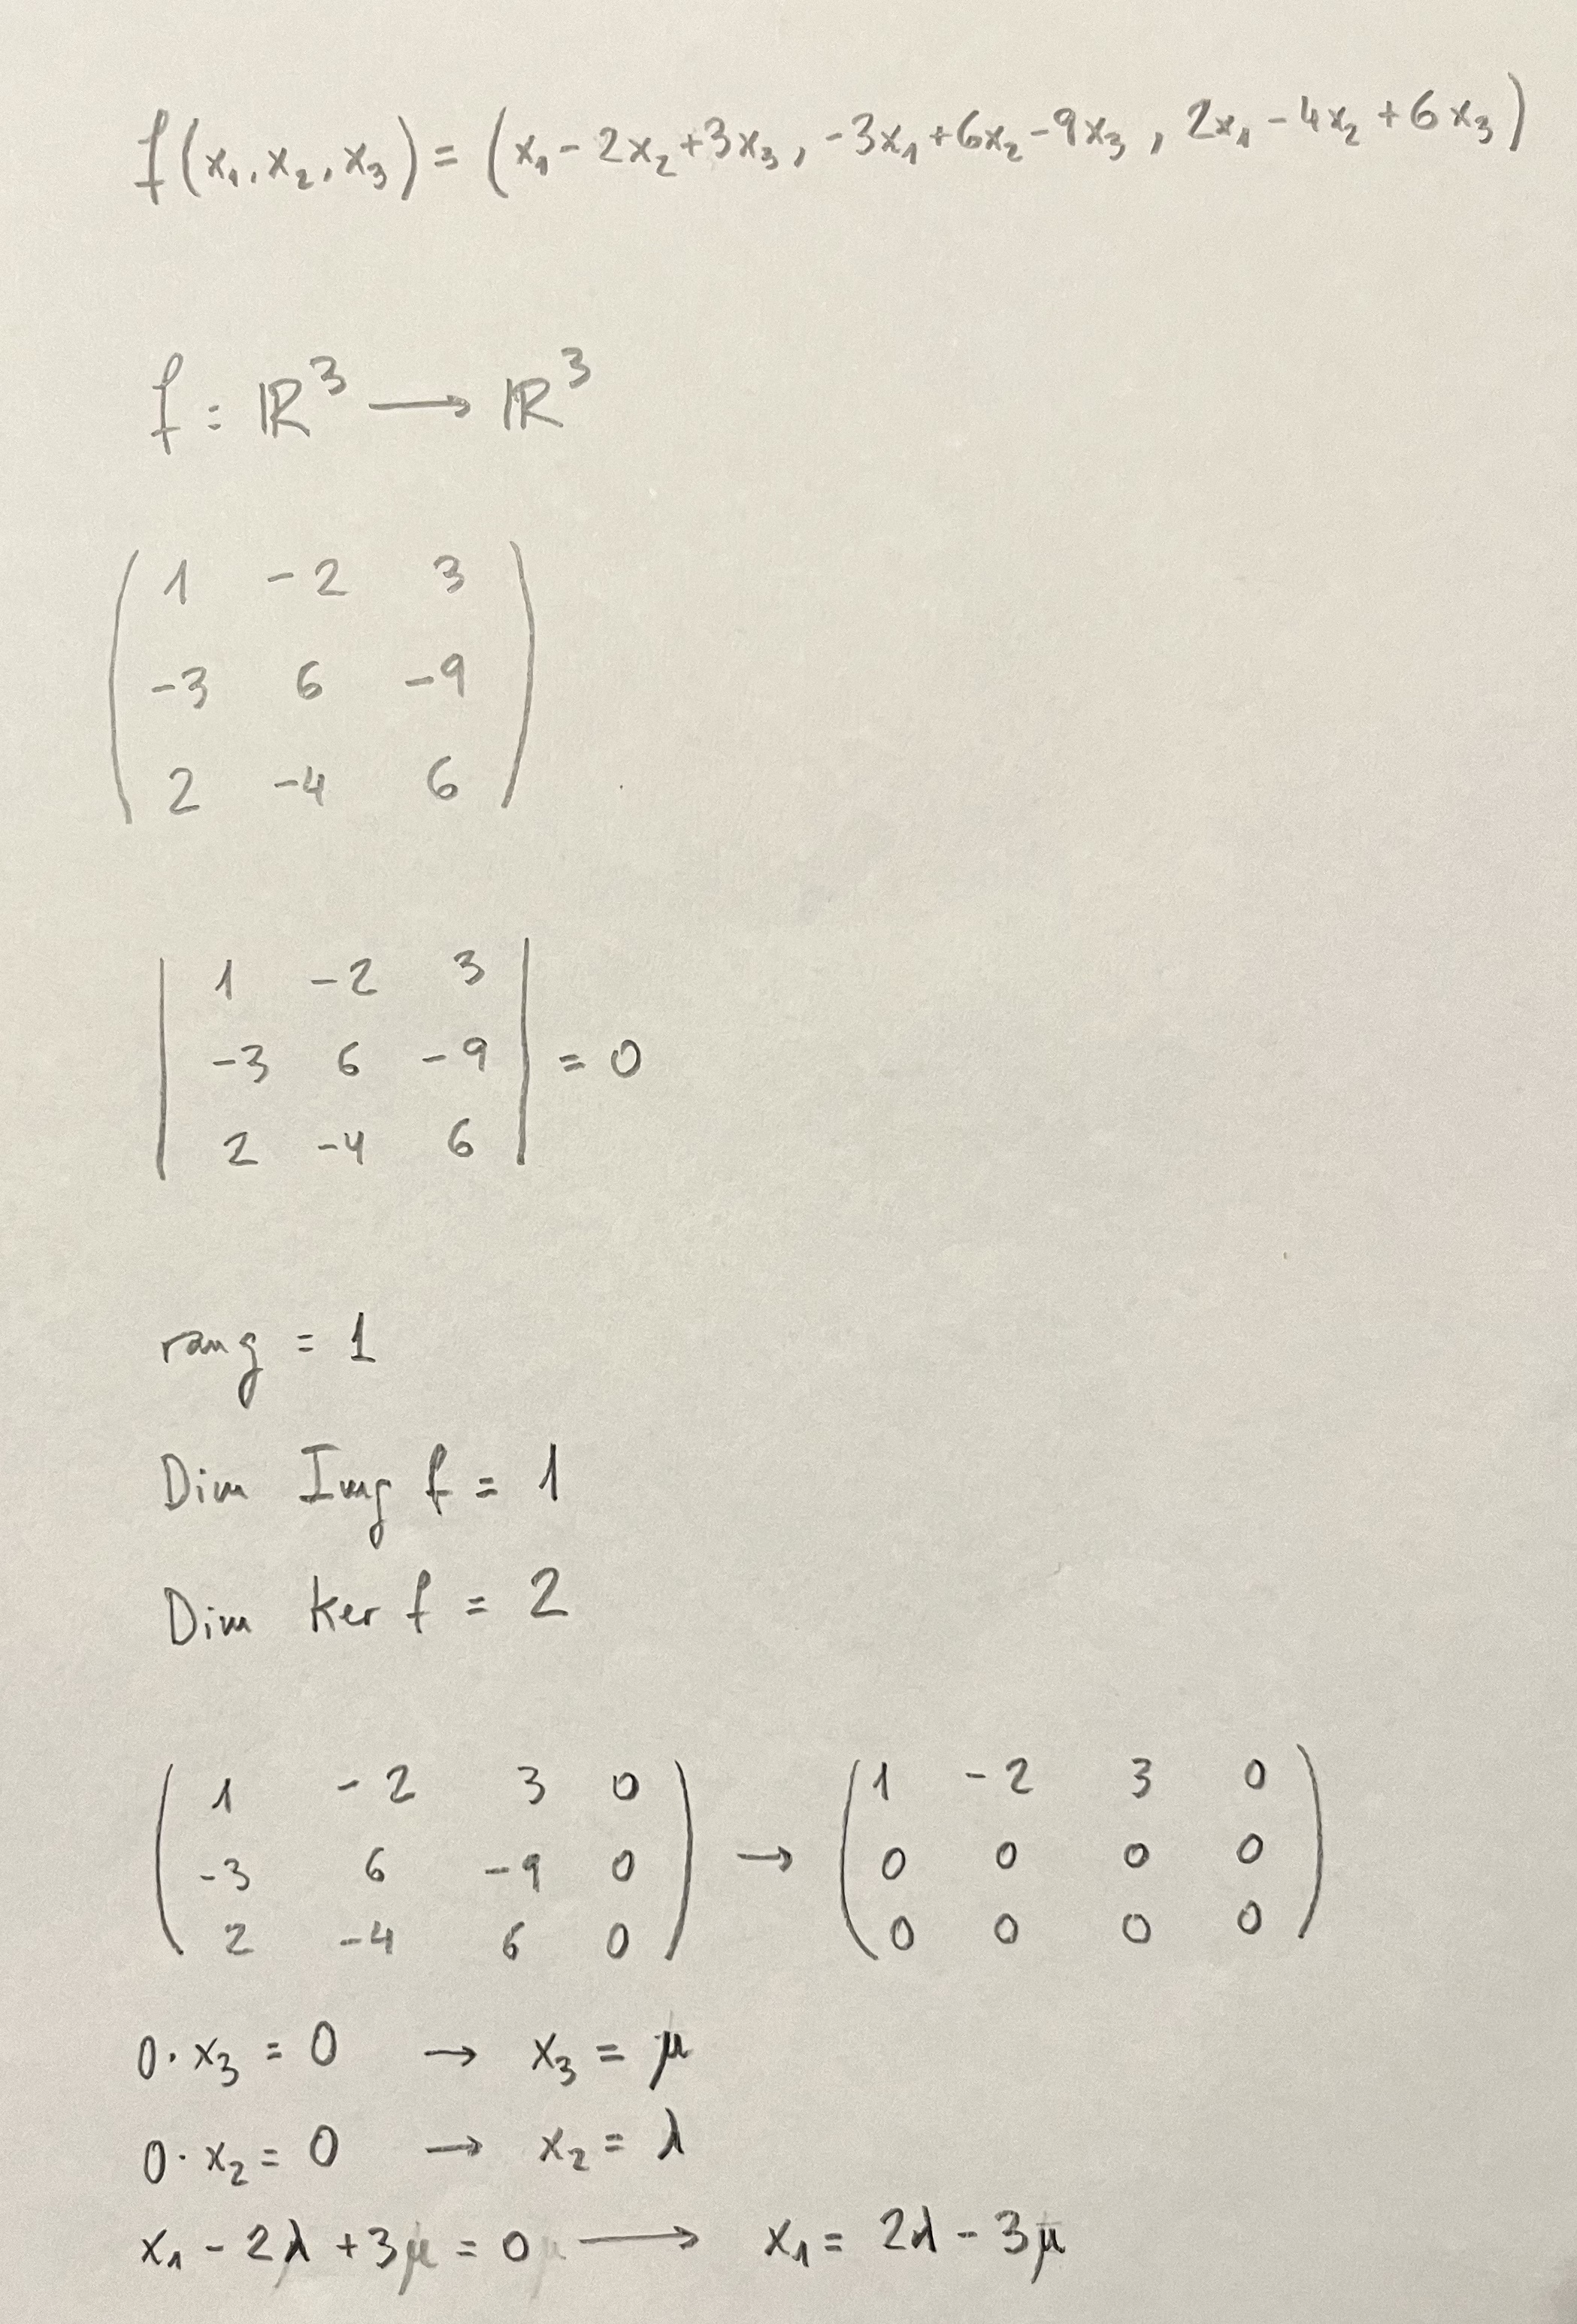 f(x₁, x₂, x₃) = (x₁ - 2x₂ + 3x₃, -3x₁ + 6x₂ - 9x₃, 2x₁ - 4x₂ + 6x₃)
f: ℝ³ ⟶ ℝ³
( 1 -2 3 )
( -3 6 -9 )
( 2 -4 6 )
| 1 -2 3 |
| -3 6 -9 | = 0
| 2 -4 6 |
rang = 1
Dim Img f = 1
Dim Ker f = 2
( 1 -2 3 0 ) ( 1 -2 3 0 )
( -3 6 -9 0 ) → ( 0 0 0 0 )
( 2 -4 6 0 ) ( 0 0 0 0 )
0·x₃ = 0 → x₃ = μ
0·x₂ = 0 → x₂ = λ
x₁ - 2λ + 3μ = 0 ⟶ x₁ = 2λ - 3μ